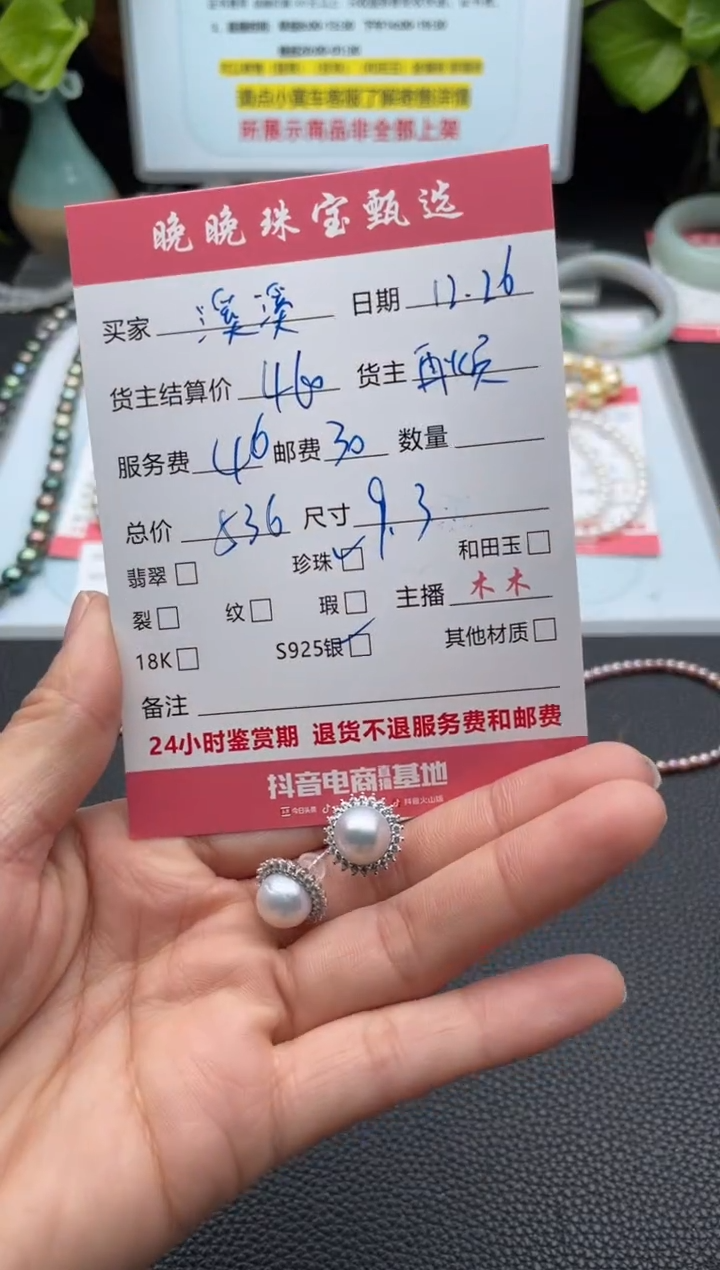 请点小黄车客服了解寄售详情
所展示商品非全部上架
晚晚珠宝甄选
买家 溪溪 日期 12.26
货主结算价 460 货主
服务费 46 邮费 30 数量
总价 536 尺寸 9.3
翡翠 珍珠 和田玉
裂 纹 瑕 主播 木木
18K S925银 其他材质
备注
24小时鉴赏期 退货不退服务费和邮费
抖音电商直播基地
今日头条 抖音火山版